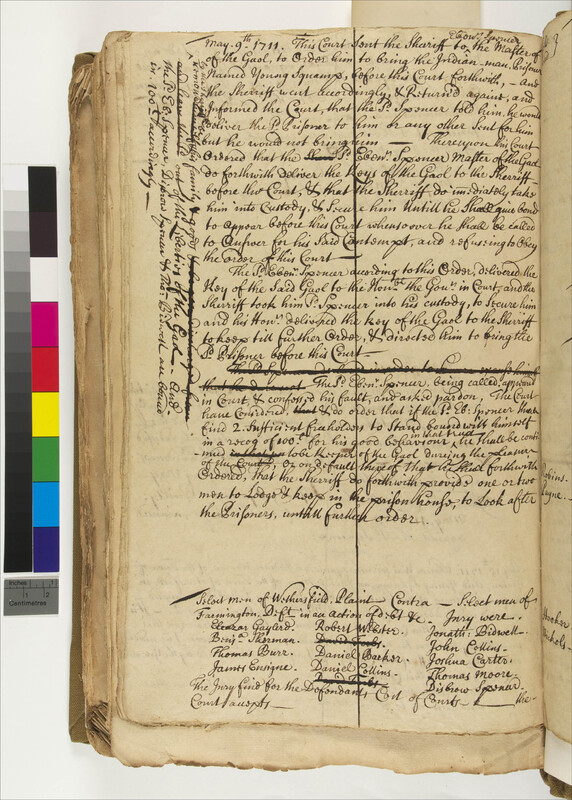 May. 9th. 1711. This Court Sent the Sheriff to Ebenr. Spencer the Master of
of the Gaol, to Order him to bring the Indian-man Prisoner
Named Young Squamp, before this Court forthwith, - and
the Sherriff went accordingly & Return'd again, and
Informed the Court, that the Sd. Spencer told him he would
deliver the Sd. Prisoner to him or any other Sent for him
but he would not bring him — Thereupon this Court
Ordered that the Sd. Ebenr. Spencer Master of the Gaol
do forthwith Deliver the Keys of the Gaol to the Sherriff
before this Court, & that the Sherriff do imediately take
him into Custody, & Secure him Untill he Shall give bond
to Appear before this Court whensoever he Shall be called
to Answer for his Said Contempt, and refusing to Obey
the Order of this Court —
The Sd. Ebenr. Spencer according to this Order, delivered the
Key of the Said Gaol to the Honrd. the Govr. in Court, and the
Sherriff took him Sd. Spencer into his custody, to Secure him
and his Honr. delivered the Key of the Gaol to the Sherriff
to keep till further Order, & directed him to bring the
Sd. Prisoner before this Court —
The Sd. Ebenr. Spencer, being called, appeared
in Court, & confessed his fault, and asked pardon, The Court
have Considered, & do order that if the Sd. Eb: Spencer
find 2 Sufficient freeholders to Stand bound with himself
in a recog of 100£. for his good behaviour in that trust, he Shall be conti-
nued to be Keeper of the Gaol during the pleasure
of the Court, or on default thereof that
Ordered, that the Sherriff do forthwith provide one or two
men to Lodge & keep in the prison house, to Look after
the Prisoners, untill further order.
family & goods
out of the Liberties of the Gaol — And
the Sd. Eb: Spencer, Disbrow Spencer & Thos. Bidwell are bound
in 100£ accordingly —
Select men of Wethersfield. Plaint Contra — Select men of
Farmington. Deft. in an Action of debt &c. Jury were.
Eleazar Gaylord. Robert Webster. Jonath: Bidwell.
Benja. Sherman. John Collins.
Thomas Burr. Daniel Barker. Joshua Carter.
James Ensigne. Daniel Collins. Thomas Moore.
Disbrow Spencer
The Jury find for the Defendants Cost of Courts — the
Court accepts —
Inches 1 2
Centimetres